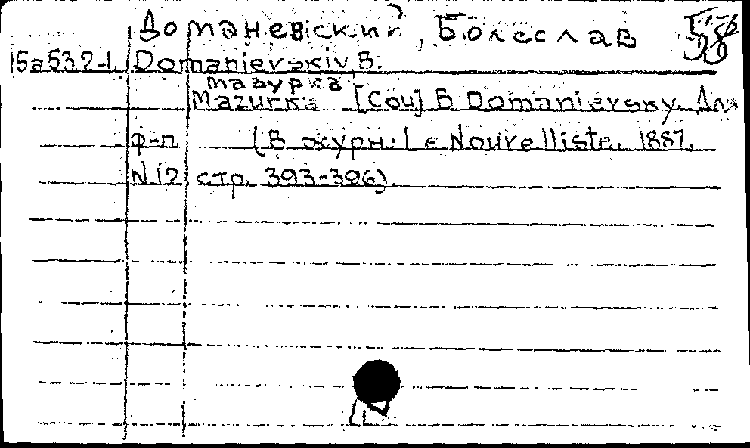 Доманевский, Болеслав
15а532-1 Domanievskiy B.
мазурка
Mazurka [Соч] B Domanievsky. Для
ф-п (В журн: Le Nouvelliste. 1887.
N.12 стр. 393-396).